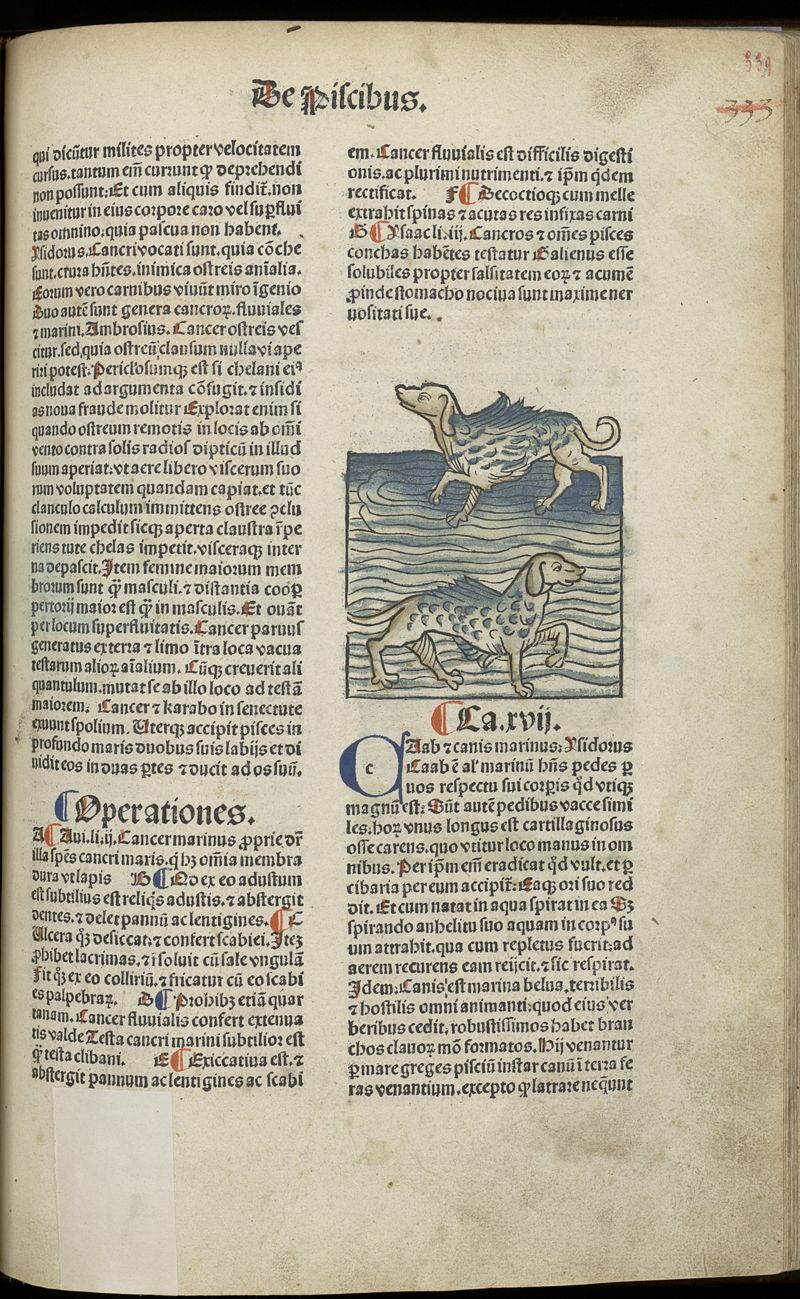 339
333
De Piscibus.
qui dicũtur milites propter velocitatem
cursus.tantum em̃ currunt ꝙ deprehendi
non possunt:Et cum aliquis findit̃.non
inuenitur in eius corpore caro vel suꝑflui
tas omnino:quia pascua non habent.
Ysidorus.Cancri vocati sunt.quia cõche
sunt.crura hñtes.inimica ostreis aĩalia.
Eorum vero carnibus viuũt miro ĩgenio
Duo autẽ sunt genera cancroꝝ.fluuiales
⁊ marini.Ambrosius.Cancer ostreis ves
citur.sed,quia ostreũ clausum nulla vi ape
riri potest.Periclosumqꝫ est si chelani eiꝰ
includat ad argumenta cõfugit.⁊ insidi
as noua fraude molitur Explorat enim si
quando ostreum remotis in locis ab om̃i
vento contra solis radios dipticũ in illud
suum aperiat:vt aere libero viscerum suo
rum voluptatem quandam capiat.et tũc
clanculo calculum immittens ostree ꝯclu
sionem impedit sicqꝫ aperta claustra ĩpe
riens tute chelas impetit.visceraqꝫ inter
na depascit.Item femine maiorum mem
brorum sunt ꝙ̃ masculi.⁊ distantia cooꝑ
pertorij maior est ꝙ̃ in masculis.Et ouãt
per locum superfluitatis.Cancer paruus
generatus ex terra ⁊ limo ĩtra loca vacua
testarum alioꝝ aĩalium.Cũqꝫ creuerit ali
quantulum.mutat se ab illo loco ad testã
maiorem: Cancer ⁊ karabo in senectute
exuunt spolium.Uterqꝫ accipit pisces in
profundo maris duobus suis labijs et di
uidit eos in duas ꝑtes ⁊ ducit ad os suũ.
Operationes.
A Aui.li.ij.Cancer marinus ꝓprie dr̃
illa spẽs cancri maris.q̃ hꝫ om̃ia membra
dura vt lapis B Qd ex eo adustum
est subtilius est reliqꝭ adustis.⁊ abstergit
dentes.⁊ delet pannũ ac lentigines. C
Ulcera qꝫ desiccat:⁊ confert scabiei.Iteꝫ
ꝓhibet lacrimas.⁊ ĩsoluit cũ sale vngulã
Fit qꝫ ex eo colliriũ.⁊ fricatur cũ eo scabi
es palpebraꝝ. D Prohibꝫ etiã quar
tanam.Cancer fluuialis confert extenua
tis valde Testa cancri marini subtilior est
ꝙ̃ testa clibani. E Exiccatiua est.⁊
abstergit pannum ac lentigines ac scabi
em.Cancer fluuialis est difficilis digesti
onis.ac plurimi nutrimenti.⁊ ip̃m q̃dem
rectificat. F Decoctioqꝫ cum melle
extrahit spinas ⁊ acutas res infixas carni
G Ysaac li.iij.Cancros ⁊ om̃es pisces
conchas habẽtes testatur Galienus esse
solubiles propter salsitatem eoꝝ ⁊ acumẽ
ꝓinde stomacho nociua sunt maxime ner
uositati sue.
Ca.xvij.
CAab ⁊ canis marinus:Ysidorus
c
Caab ẽ al' marinũ hñs pedes ꝑ
uos respectu sui corꝑis q̃d vtiqꝫ
magnũ est:Sũt autẽ pedibus vacce simi
les.hoꝝ vnus longus est cartillaginosus
osse carens.quo vtitur loco manus in om
nibus.Per ip̃m em̃ eradicat q̃d vult.et ꝑ
cibaria per eum accipit̃:Eaqꝫ ori suo red
dit.Et cum natat in aqua spirat in ea Sꝫ
spirando anhelitu suo aquam in corpꝰ su
um attrahit.qua cum repletus fuerit:ad
aerem recurens eam reijcit.⁊ sic respirat.
Idem:Canis est marina belua.terribilis
⁊ hostilis omni animanti:quod eius ver
beribus cedit.robustissimos habet bran
chos clauoꝝ mõ formatos.Hij venantur
ꝑ mare greges pisciũ instar canũ ĩ terra fe
ras venantium.excepto ꝙ latrare neq̃unt